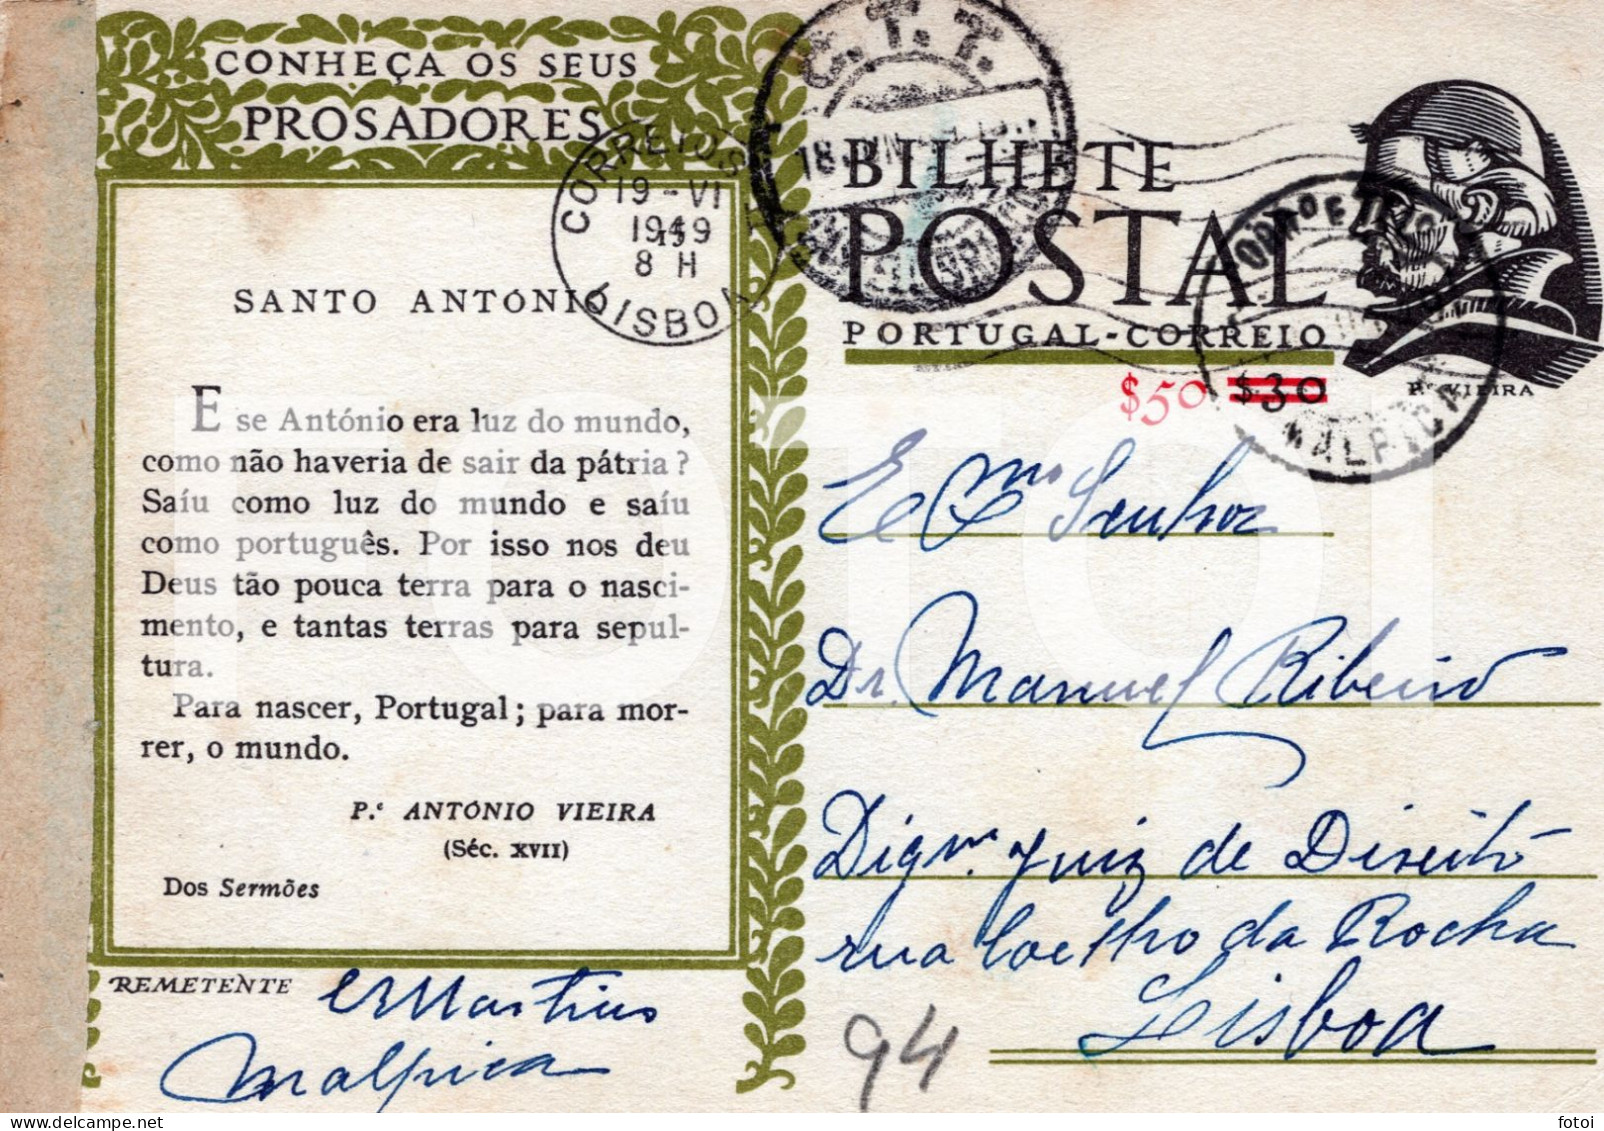 CONHEÇA OS SEUS
PROSADORES
SANTO ANTÓNIO
E se António era luz do mundo,
como não haveria de sair da pátria?
Saíu como luz do mundo e saíu
como português. Por isso nos deu
Deus tão pouca terra para o nasci-
mento, e tantas terras para sepul-
tura.
Para nascer, Portugal; para mor-
rer, o mundo.
P.ᵉ ANTÓNIO VIEIRA
(Séc. XVII)
Dos Sermões
REMETENTE
Martins
Malpica
CORREIOS
19-VI
1949
8 H
LISBOA
C.T.T.
18
BILHETE
POSTAL
PORTUGAL-CORREIO
$50 $30
P.ᵉ VIEIRA
MALPICA
Exmº Senhor
Dr. Manuel Ribeiro
Digmº. Juiz de Direito
rua Coelho da Rocha
Lisboa
94
fotoi